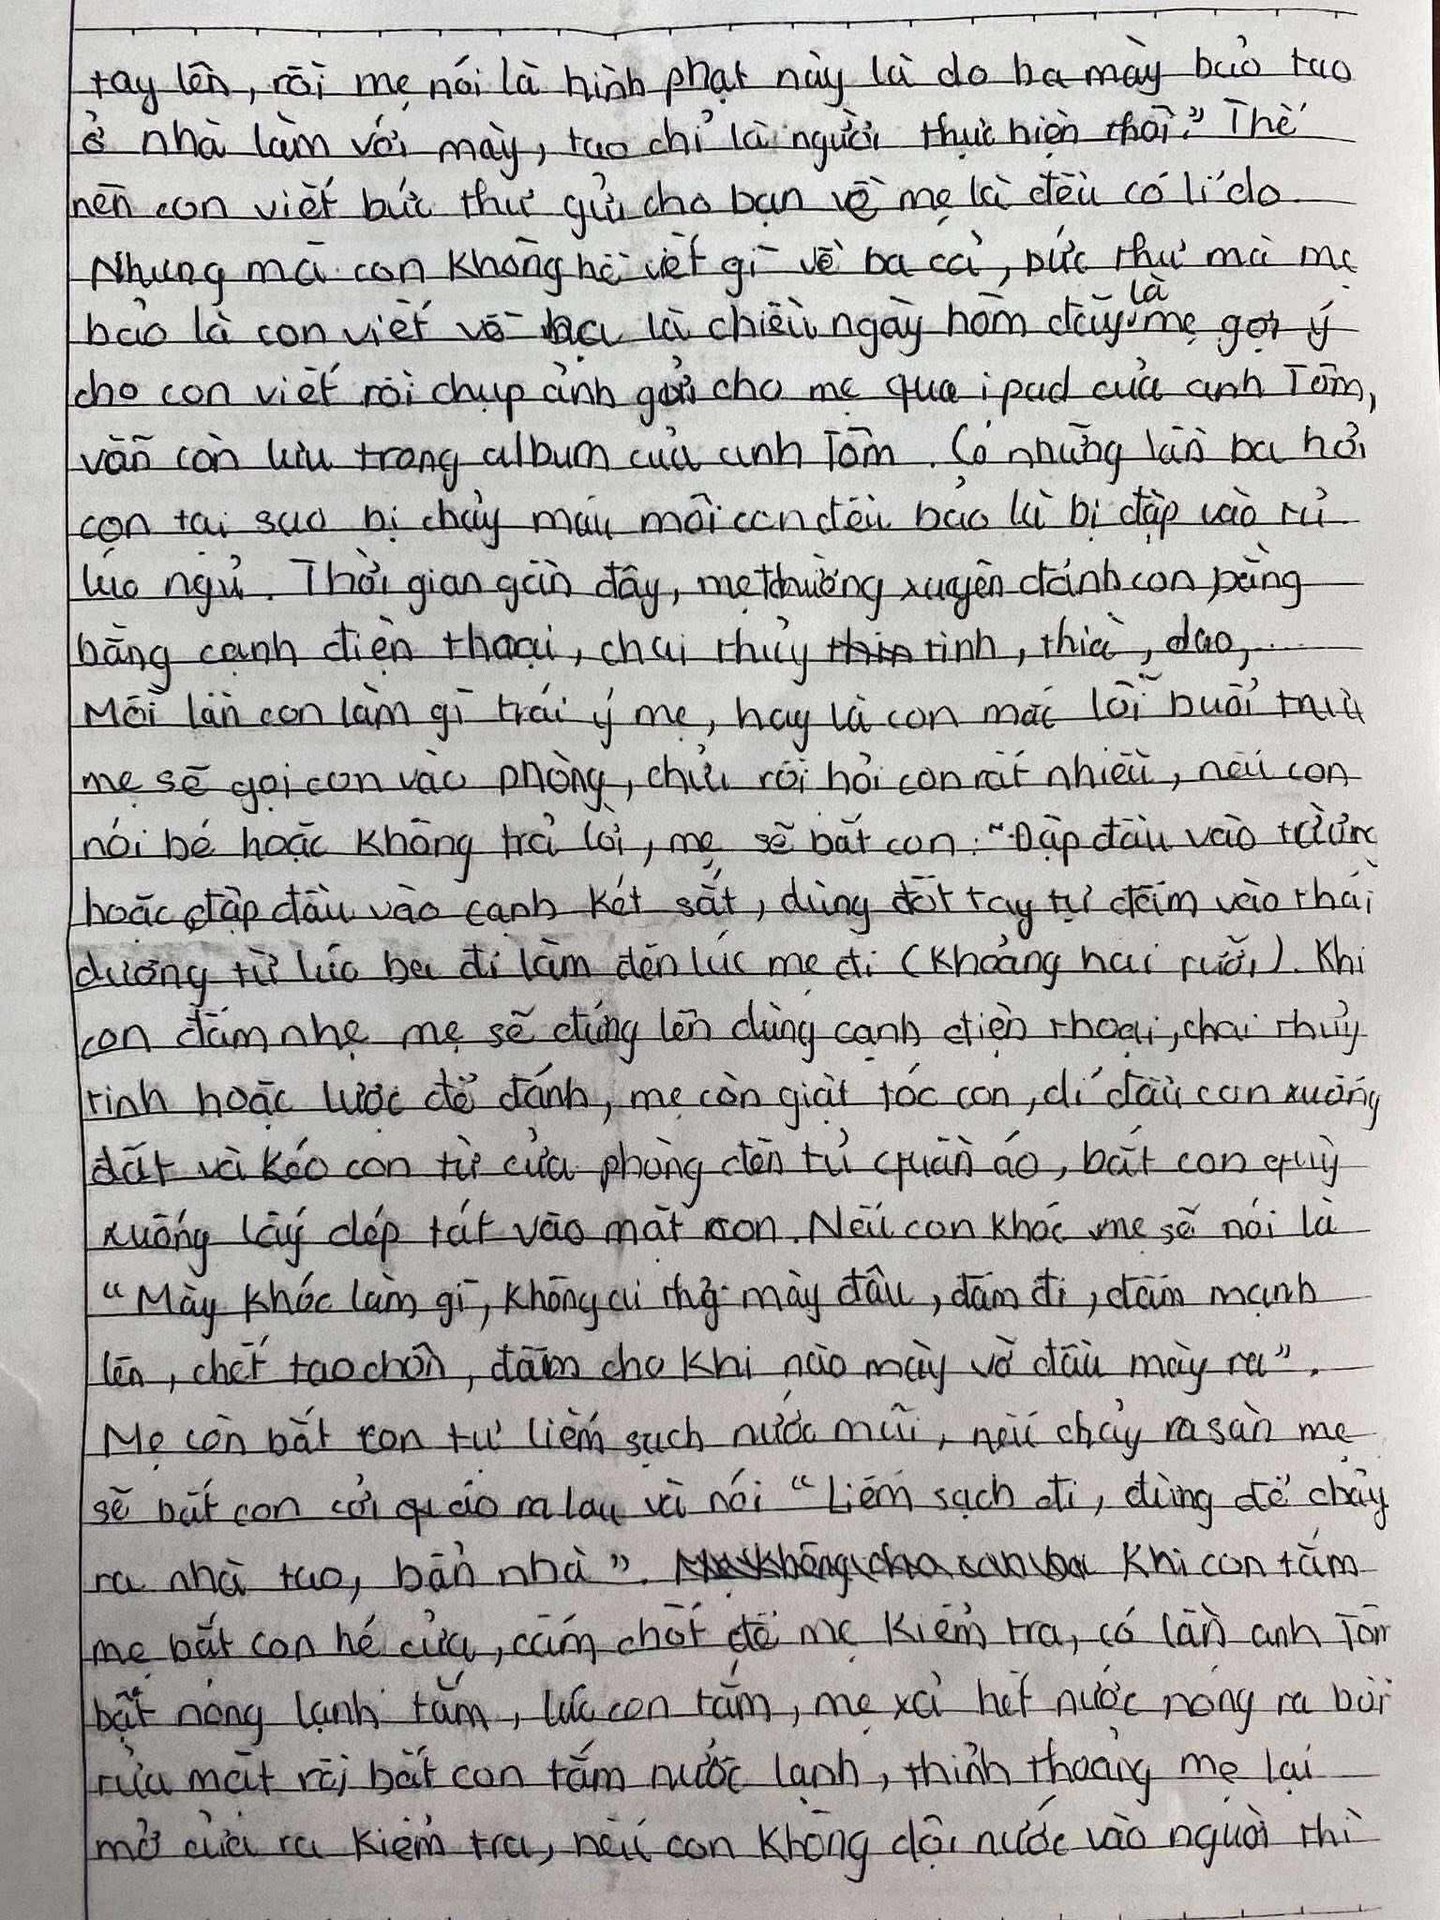 tay lên, rồi mẹ nói là hình phạt này là do ba mày bảo tao
ở nhà làm với mày, tao chỉ là người thực hiện thôi." Thế
nên con viết bức thư gửi cho bạn về mẹ là đều có lí do.
Nhưng mà con không hề viết gì về ba cả, bức thư mà mẹ
bảo là con viết về ba là chiều ngày hôm đấy là mẹ gợi ý
cho con viết rồi chụp ảnh gửi cho mẹ qua ipad của anh Tôm,
vẫn còn lưu trong album của anh Tôm. Có những lần ba hỏi
con tại sao bị chảy máu môi con đều bảo là bị đập vào tủ
lúc ngủ. Thời gian gần đây, mẹ thường xuyên đánh con bằng
bằng cạnh điện thoại, chai thủy tinh, thìa, dao,...
Mỗi lần con làm gì trái ý mẹ, hay là con mắc lỗi buổi trưa
mẹ sẽ gọi con vào phòng, chửi rồi hỏi con rất nhiều, nếu con
nói bé hoặc không trả lời, mẹ sẽ bắt con: "Đập đầu vào tường
hoặc đập đầu vào cạnh két sắt, dùng đốt tay tự đấm vào thái
dương từ lúc ba đi làm đến lúc mẹ đi (khoảng hai rưỡi). Khi
con đấm nhẹ mẹ sẽ đứng lên dùng cạnh điện thoại, chai thủy
tinh hoặc lược để đánh, mẹ còn giật tóc con, dí đầu con xuống
đất và kéo con từ cửa phòng đến tủ quần áo, bắt con quỳ
xuống lấy dép tát vào mặt con. Nếu con khóc mẹ sẽ nói là
"Mày khóc làm gì, không ai thg mày đâu, đấm đi, đấm mạnh
lên, chết tao chôn, đấm cho khi nào mày vỡ đầu mày ra".
Mẹ còn bắt con tự liếm sạch nước mũi, nếu chảy ra sàn mẹ
sẽ bắt con cởi quáo ra lau và nói "Liếm sạch đi, đừng để chảy
ra nhà tao, bẩn nhà". Khi con tắm
mẹ bắt con hé cửa, cấm chốt để mẹ kiểm tra, có lần anh Tôm
bật nóng lạnh tắm, lúc con tắm, mẹ xả hết nước nóng ra bồn
rửa mặt rồi bắt con tắm nước lạnh, thỉnh thoảng mẹ lại
mở cửa ra kiểm tra, nếu con không dội nước vào người thì